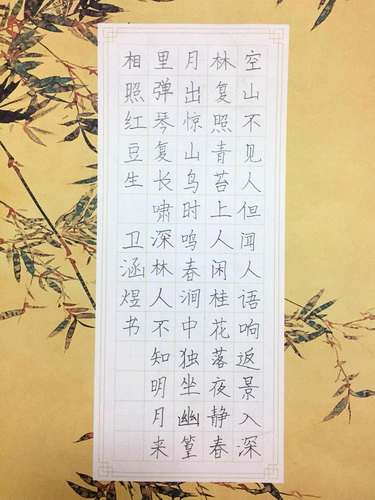 空山不见人但闻人语响返景入深
林复照青苔上人闲桂花落夜静春
月出惊山鸟时鸣春涧中独坐幽篁
里弹琴复长啸深林人不知明月来
相照红豆生 卫涵煜书